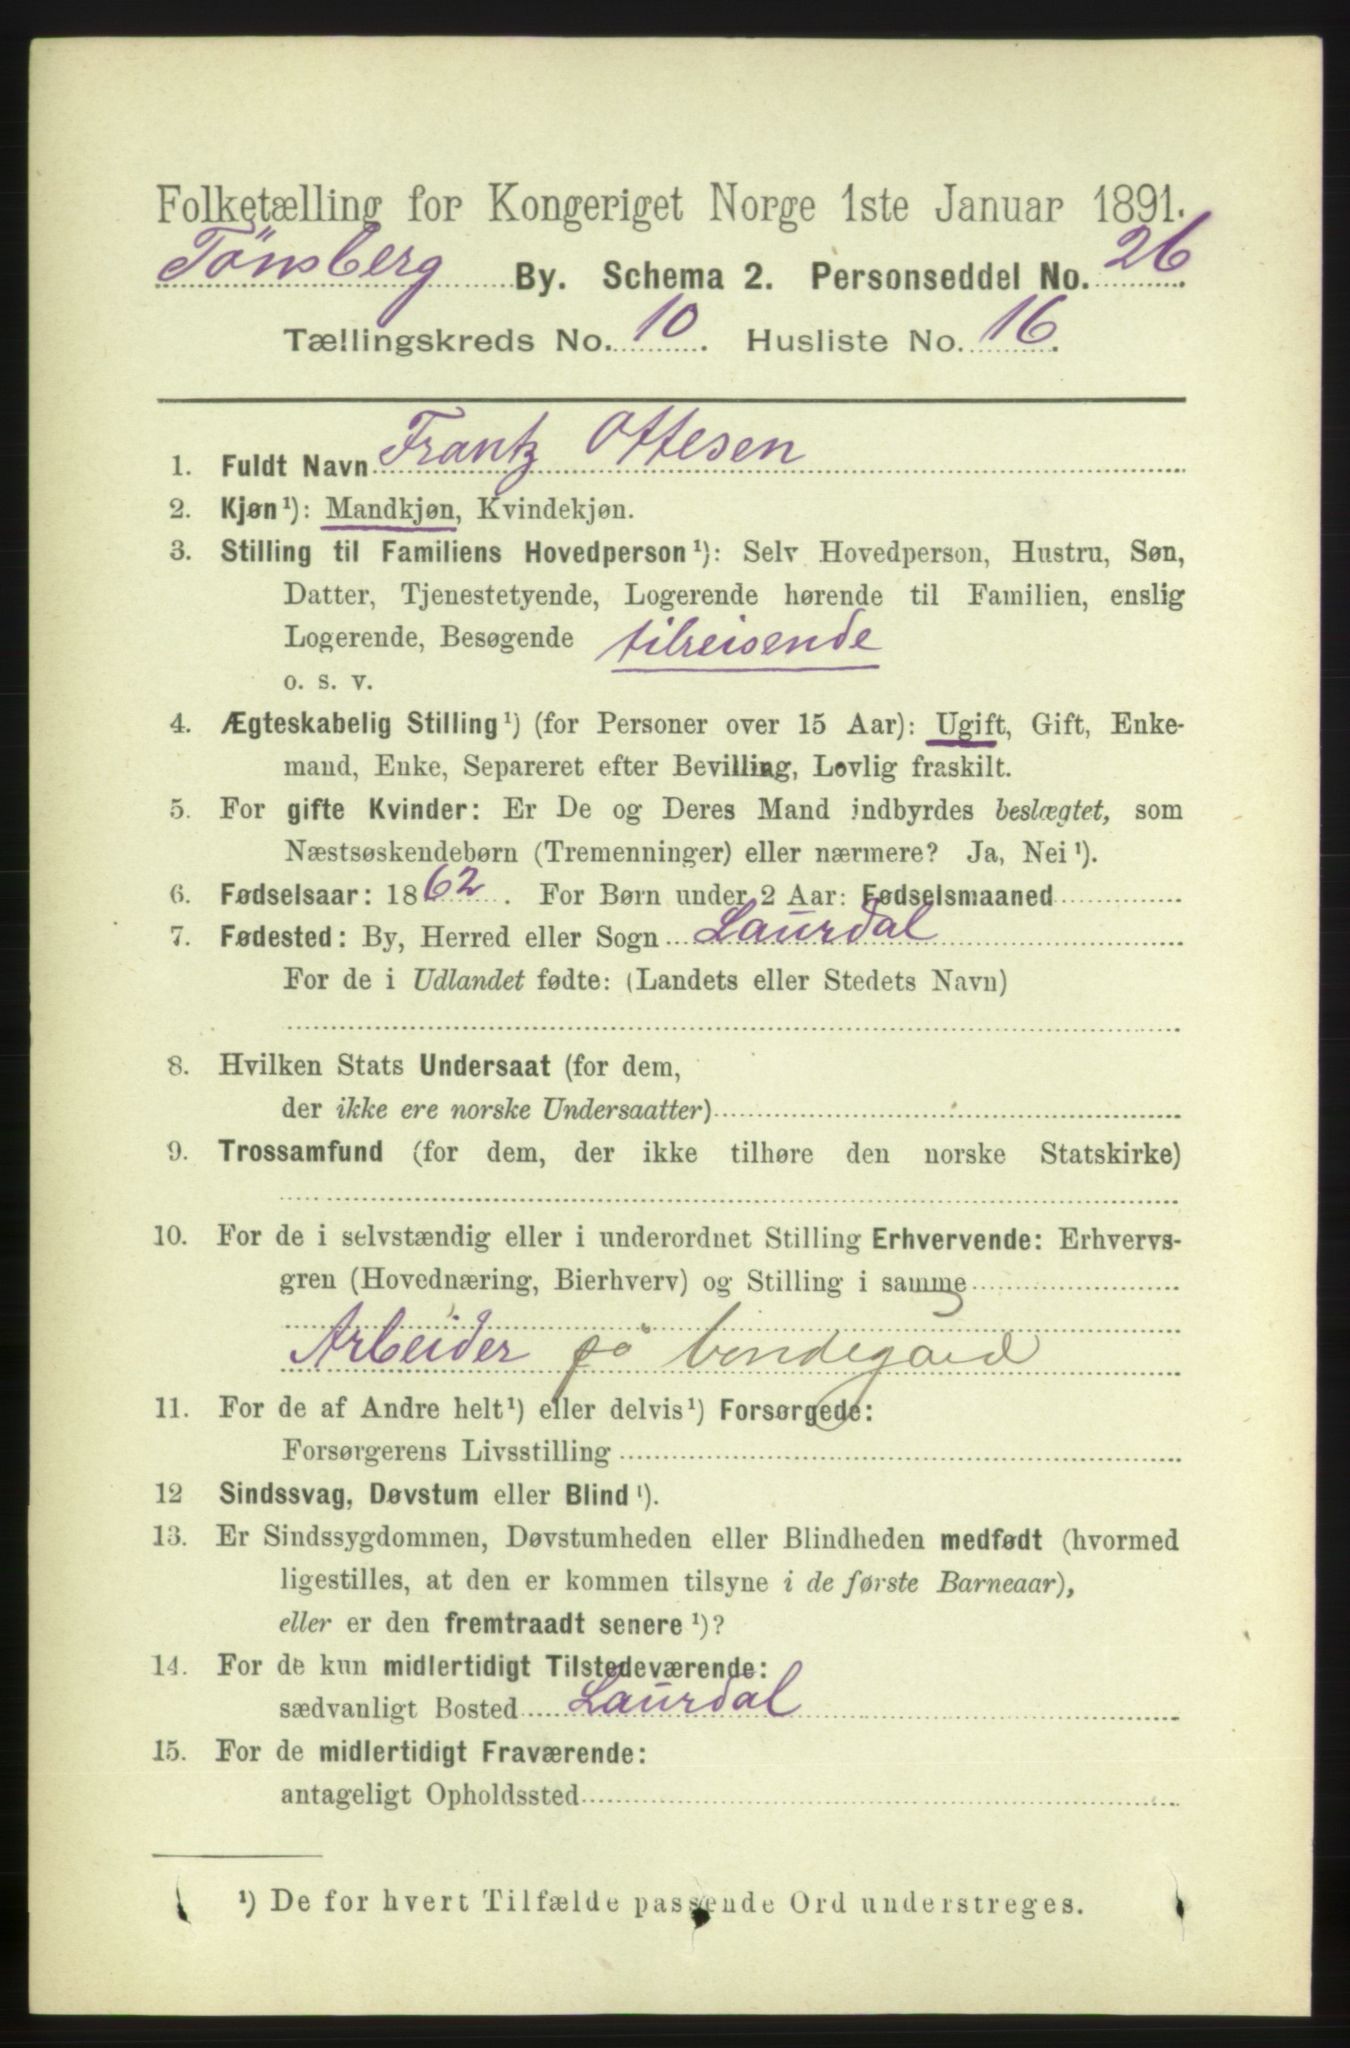 Folketælling for Kongeriget Norge 1ste Januar 1891.
Tønsberg By. Schema 2. Personseddel No. 26
Tællingskreds No. 10. Husliste No. 16.
1. Fuldt Navn Frantz Ottesen
2. Kjøn¹): Mandkjøn, Kvindekjøn.
3. Stilling til Familiens Hovedperson¹): Selv Hovedperson, Hustru, Søn,
Datter, Tjenestetyende, Logerende hørende til Familien, enslig
Logerende, Besøgende tilreisende
o. s. v.
4. Ægteskabelig Stilling¹) (for Personer over 15 Aar): Ugift, Gift, Enke-
mand, Enke, Separeret efter Bevilling, Lovlig fraskilt.
5. For gifte Kvinder: Er De og Deres Mand indbyrdes beslægtet, som
Næstsøskendebørn (Tremenninger) eller nærmere? Ja, Nei¹).
6. Fødselsaar: 1862. For Børn under 2 Aar: Fødselsmaaned
7. Fødested: By, Herred eller Sogn Laurdal
For de i Udlandet fødte: (Landets eller Stedets Navn)
8. Hvilken Stats Undersaat (for dem,
der ikke ere norske Undersaatter)
9. Trossamfund (for dem, der ikke tilhøre den norske Statskirke)
10. For de i selvstændig eller i underordnet Stilling Erhvervende: Erhvervs-
gren (Hovednæring, Bierhverv) og Stilling i samme
Arbeider på bondegård
11. For de af Andre helt¹) eller delvis¹) Forsørgede:
Forsørgerens Livsstilling
12 Sindssvag, Døvstum eller Blind¹).
13. Er Sindssygdommen, Døvstumheden eller Blindheden medfødt (hvormed
ligestilles, at den er kommen tilsyne i de første Barneaar),
eller er den fremtraadt senere¹)?
14. For de kun midlertidigt Tilstedeværende:
sædvanligt Bosted Laurdal
15. For de midlertidigt Fraværende:
antageligt Opholdssted
¹) De for hvert Tilfælde passende Ord understreges.